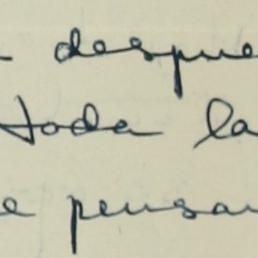 despue
toda la
e pensar